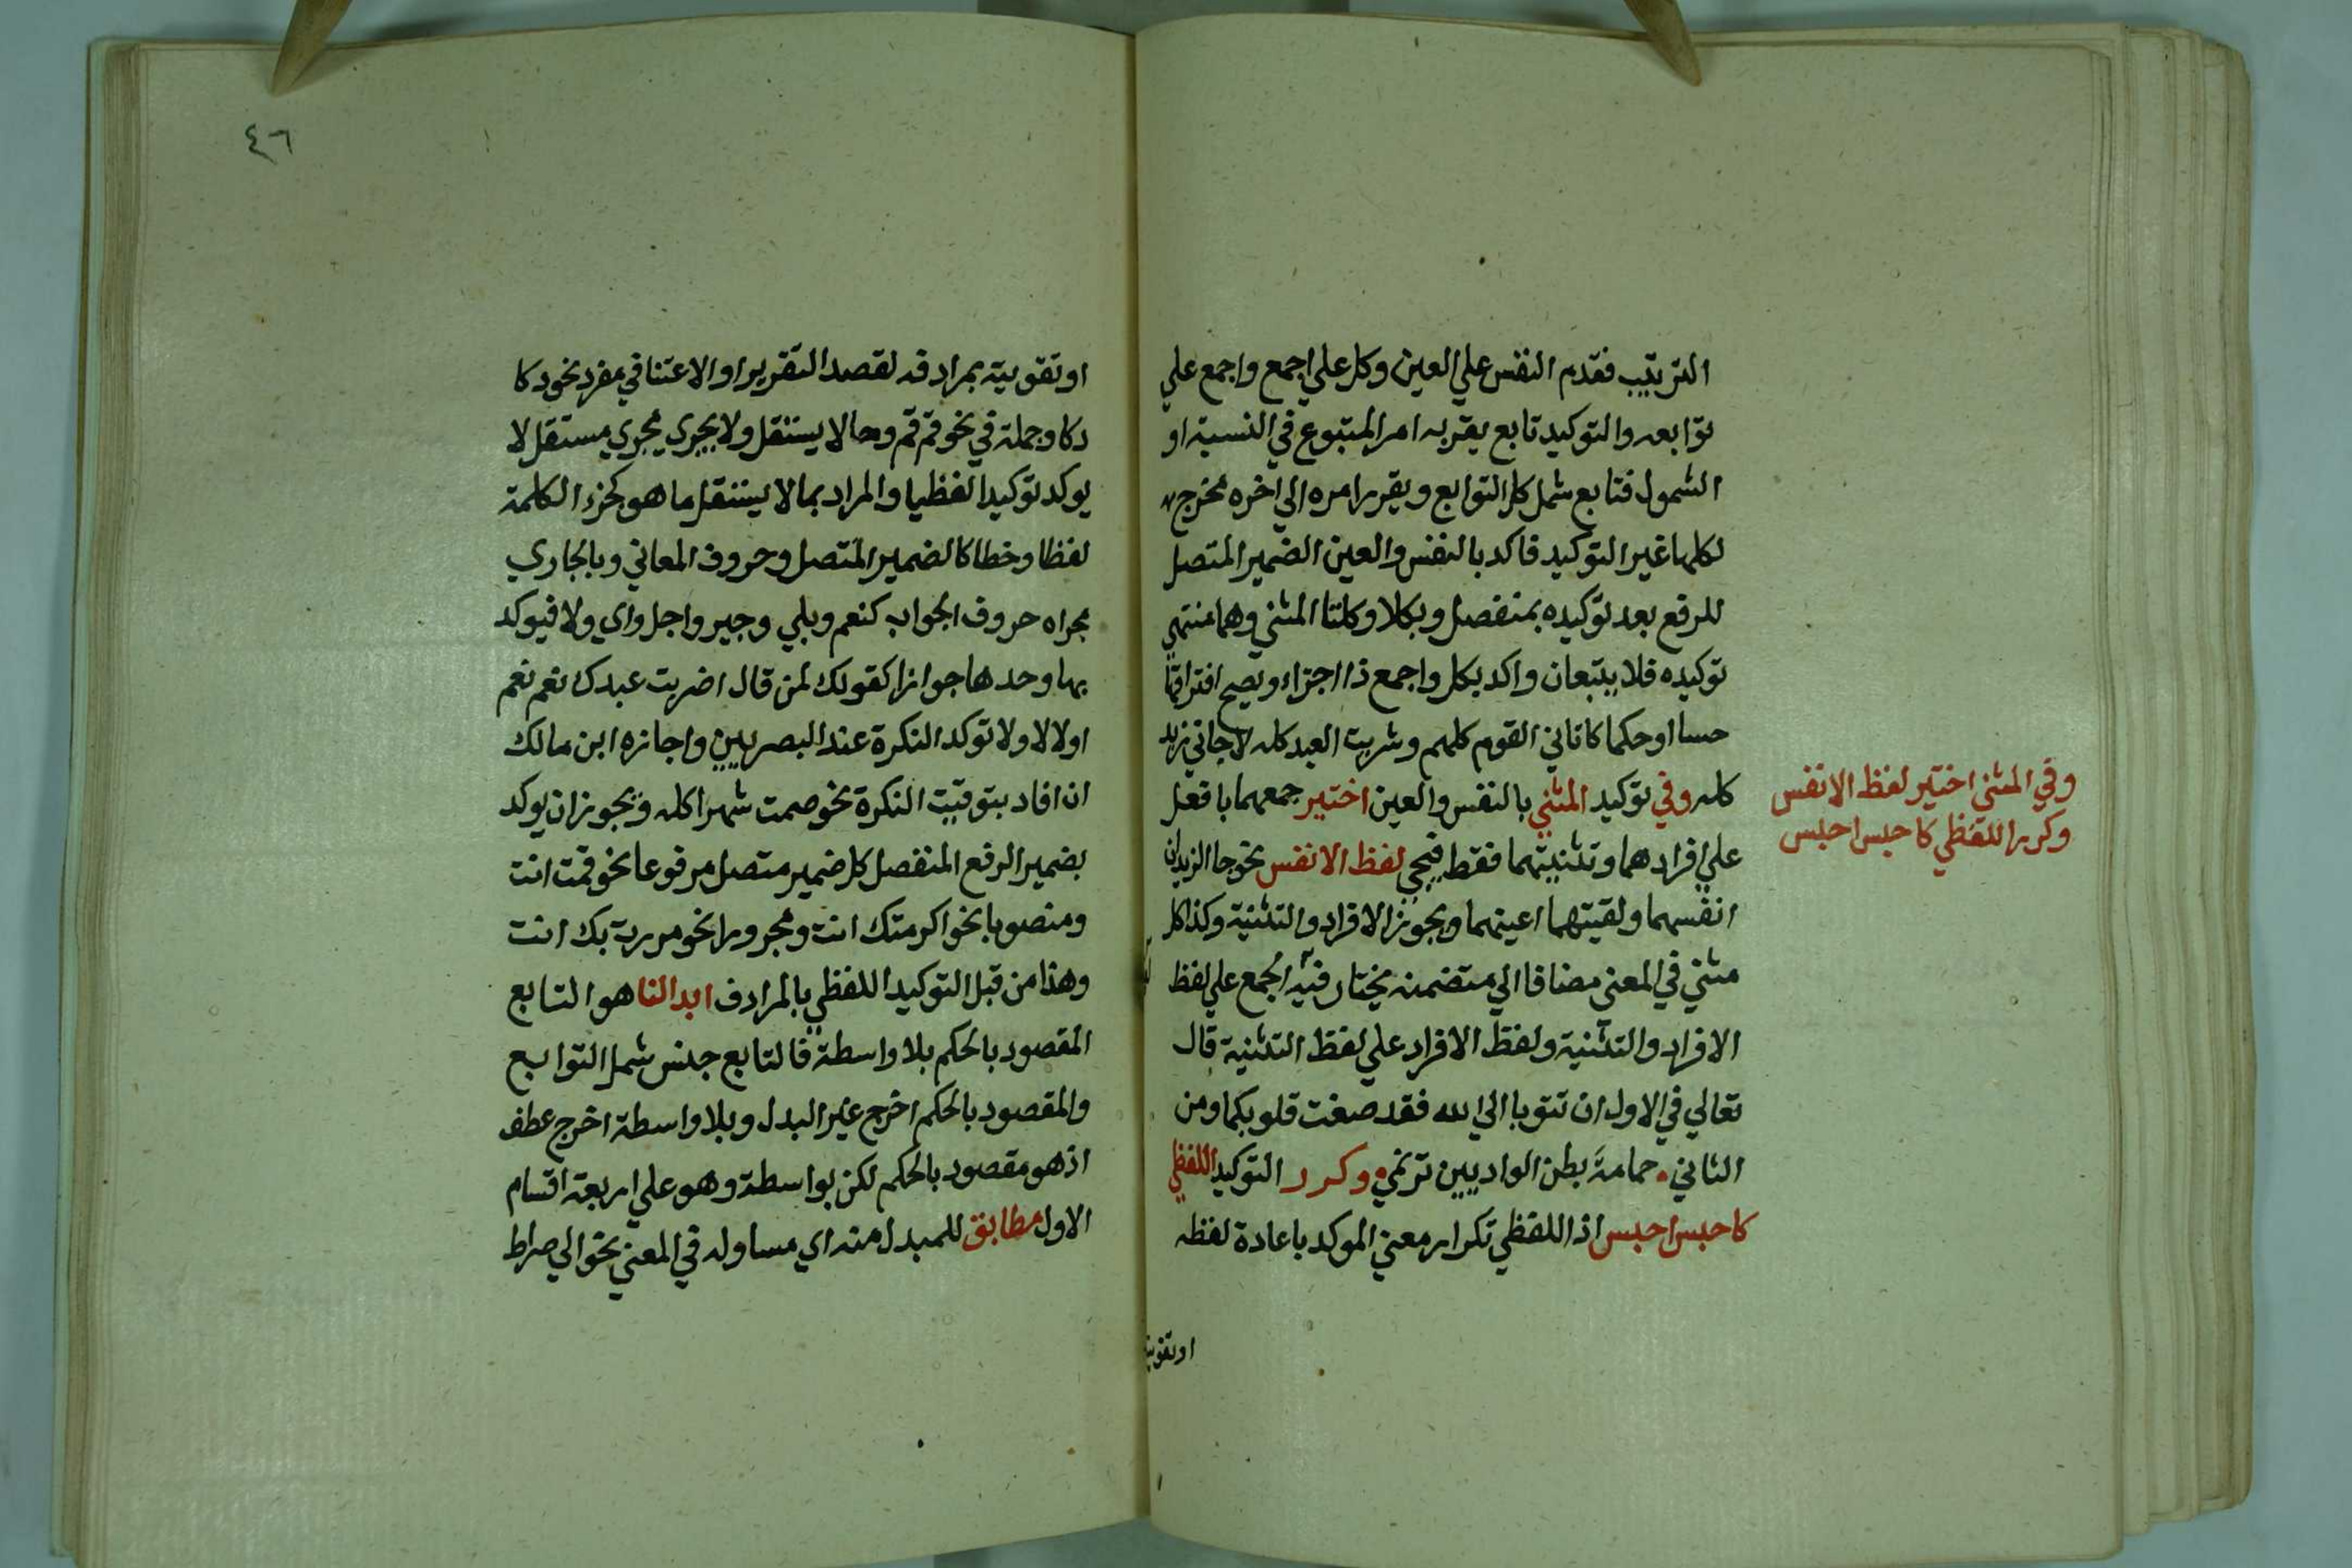 الترتيب فقدم النفس علي العين وكل علي اجمع واجمع علي
توابعه والتوكيد تابع يقر به امر المتبوع في النسبة او
الشمول فتابع شمل كل التوابع ويقرر امره الي اخره مخرج
لكلها غير التوكيد فاكد بالنفس والعين الضمير المتصل
للرفع بعد توكيده بمنفصل وبكلا وكلتا المثني وهما منتهي
توكيده فلا يتبعان واكد بكل واجمع ذا اجزاء ويصح افتراقها
حسا او حكما كاتاني القوم كلهم وشريت العبد كله لا جاني زيد
كله وفي توكيد المثني بالنفس والعين اختير جمعهما بافعل
علي افرادهما وتثنيتهما فقط فيجي لفظ الانفس نحو جا الزيدان
انفسهما ولقيتهما اعينهما ويجوز الافراد والتثنية وكذا كل
مثني في المعني مضافا الي متضمنه يختار فيه الجمع علي لفظ
الافراد والتثنية ولفظ الافراد علي لفظ التثنية قال
تعالي في الاول ان تتوبا الي الله فقد صغت قلوبكما ومن
الثاني حمامة بطن الواديين ترنمي وكرر التوكيد اللفظي
كاحبس احبس اذ اللفظي تكرار معني الموكد باعادة لفظه
اوتقوية
وفي المثني اختير لفظ الانفس
وكرر اللفظي كاحبس احبس
٤٦
او تقويته بمرادفه لقصد التقرير او الاعتنا في مفرد نحو دكا
دكا وجملة في نحو قم قم وما لا يستقل ولا يجري مجري مستقل لا
يوكد توكيدا لفظيا والمراد بما لا يستقل ما هو كجزء الكلمة
لفظا وخطا كالضمير المتصل وحروف المعاني وبالجاري
مجراه حروف الجواب كنعم وبلي وجير واجل واي ولا فيوكد
بها وحدها جوازا كقولك لمن قال اضربت عبدك نعم نعم
اولا لا ولا توكد النكرة عند البصريين واجازه ابن مالك
ان افاد بتوقيت النكرة نحو صمت شهرا كله ويجوز ان يوكد
بضمير الرفع المنفصل كل ضمير متصل مرفوعا نحو قمت انت
ومنصوبا نحو اكرمتك انت ومجرورا نحو مررت بك انت
وهذا من قبل التوكيد اللفظي بالمرادف ابدالنا هو التابع
المقصود بالحكم بلا واسطة فالتابع جنس شمل التوابع
والمقصود بالحكم اخرج غير البدل وبلا واسطة اخرج عطف
اذ هو مقصود بالحكم لكن بواسطة وهو علي اربعة اقسام
الاول مطابق للمبدل منه اي مساوله في المعني نحو الي صراط